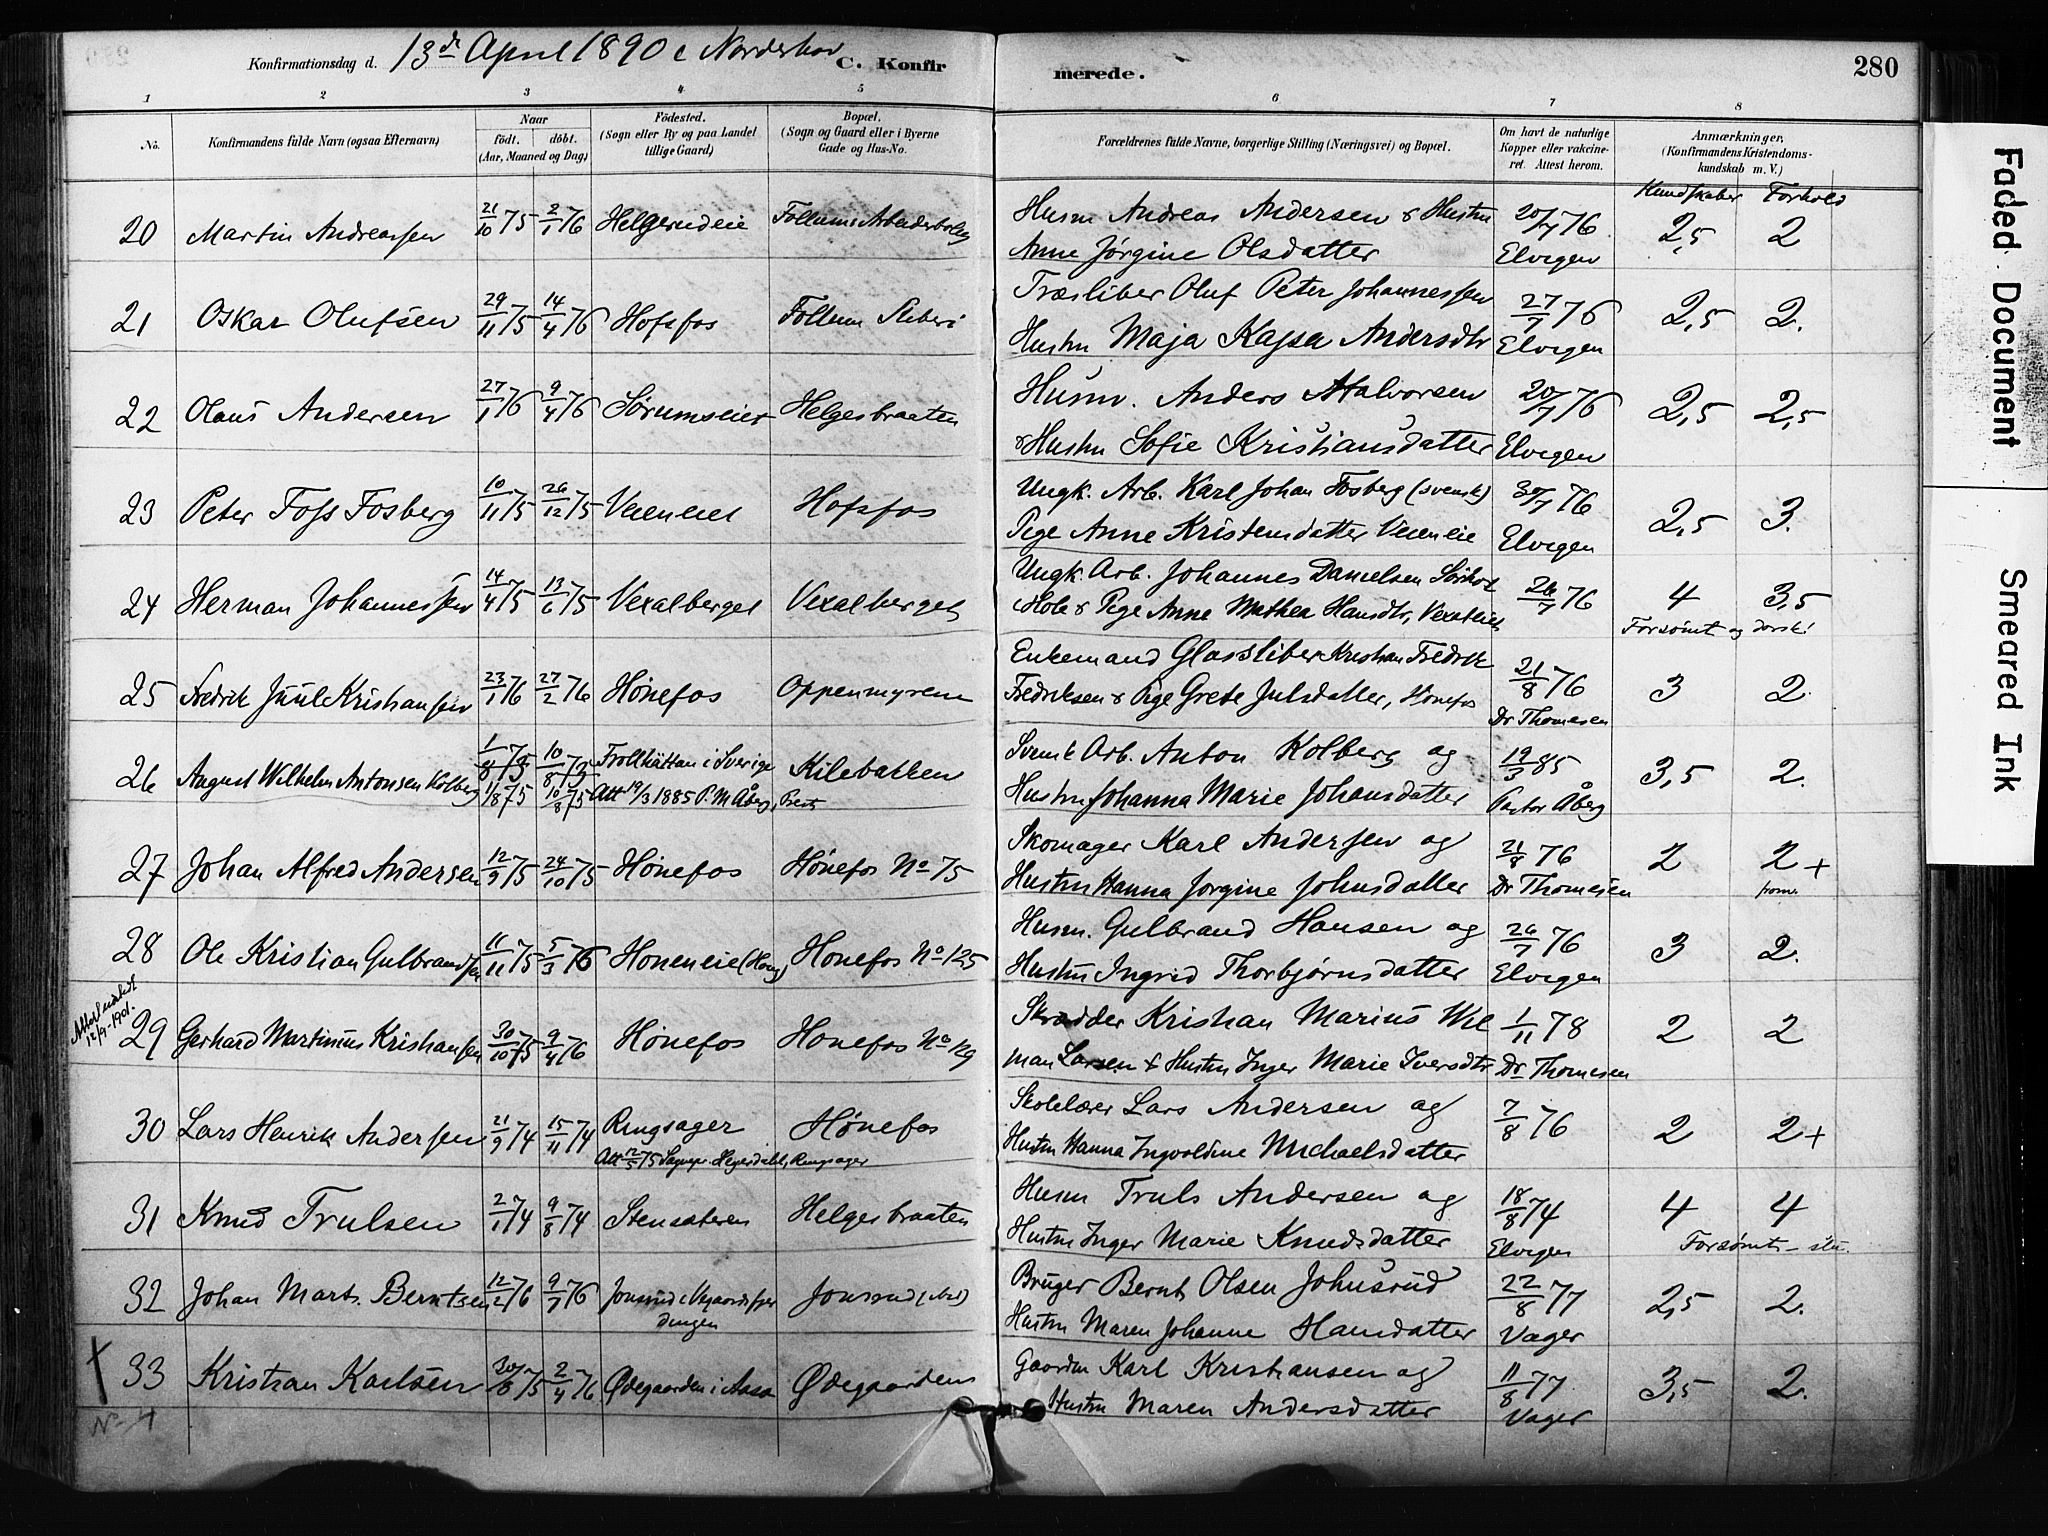 Konfirmationsdag d. 13de April 1890 i Norderhov C. Konfirmerede. 280
1 2 3 4 5 6 7 8
No. Konfirmandens fulde Navn (ogsaa Efternavn) Naar født. døbt. (Aar, Maaned og Dag) Fødested. (Sogn eller By og paa Landet tillige Gaard) Bopæl. (Sogn og Gaard eller i Byerne Gade og Hus-No. Forældrenes fulde Navne, borgerlige Stilling (Næringsvei) og Bopæl. Om havt de naturlige Kopper eller vakcineret. Attest herom. Anmærkninger, (Konfirmandens Kristendomskundskab m. V.)
Kundskaber Forhold
20 Martin Andreassen 21/10 75 2/1 76 Helgerudeie Follums Arbeiderbolig Husm Andreas Andersen & Hustru 20/7 76 2,5 2
Anne Jørgine Olsdatter Elvigen
21 Oskar Olufsen 29/11 75 14/4 76 Hofsfos Follum Sliberi Træsliber Oluf Peter Johannessen 27/7 76 2,5 2.
Hustru Maja Kajsa Andersdtr Elvigen
22 Olaus Andersen 27/1 76 9/4 76 Sørumseier Helgesbraaten Husm. Anders Halvorsen 20/7 76 2,5 2,5
& Hustru Sofie Kristiansdatter Elvigen
23 Peter Foss Fosberg 10/11 75 26/12 75 Veieneiet Hofsfos Ungk. Arb. Karl Johan Fosberg (svensk) 30/7 76 2,5 3.
Pige Anne Kristensdatter Veieneie Elvigen
24 Herman Johannessen 14/4 75 13/6 75 Vexalberget Vexalberget Ungk. Arb. Johannes Danielsen 26/7 76 4 3,5
i Hole & Pige Anne Mathea Hansdtr, Forsømt og dorsk!
25 Fredrik Juul Kristiansen 23/1 76 27/2 76 Hønefos Oppenmyrene Enkemand Glassliber Kristian Fredrik 21/8 76 3 2
Fredriksen & Pige Grete Julsdatter, Hønefos Dr Thomesen
26 August Wilhelm Antonsen Kolberg 1/8 75 10/8 75 Trollhättan i Sverige Kilebakken Svensk Arb. Anton Kolberg og 19/3 85 3,5 2.
1/8 75 10/8 75 Att 19/3 1885 P. M Åberg, Prest Hustru Johanna Marie Johansdatter Pastor Åberg
27 Johan Alfred Andersen 12/9 75 24/10 75 Hønefos Hønefos No 75 Skomager Karl Andersen og 21/8 76 2 2 +
Hustru Hanna Jørgine Johnsdatter Dr Thomesen from.
28 Ole Kristian Gulbrandsen 11/11 75 5/3 76 Honeneie (Hong) Honefos No 125 Husm. Gulbrand Hansen og 26/7 76 3 2.
Hustru Ingrid Thorbjørnsdatter Elvigen
12/9-1901.
29 Gerhard Martinius Kristiansen 30/10 75 9/4 76 Hønefos Honefos No 129 Skrædder Kristian Marius Wil 1/11 78 2 2
man Larsen & Hustru Inger Marie Iversdtr Dr Thomesen
30 Lars Henrik Andersen 21/9 74 15/11 74 Ringsager Hønefos Skolelærer Lars Andersen og 7/8 76 2 2 +
Att 12/5 75 Sognepr. Hegerdahl, Ringsager Hustru Hanna Ingvoldine Michaelsdatter
31 Knud Trulsen 2/1 74 9/8 74 Stensæteren Helgesbraaten Husm Truls Andersen og 18/8 74 4 4
Hustru Inger Marie Knudsdatter Elvigen Forsømt
32 Johan Mart. Berntsen 12/2 76 9/7 76 Jonsrud i Vegaardsfjer Jonsrud Bruger Bernt Olsen Johnsrud 22/8 77 2,5 2.
dingen Hustru Maren Johanne Hansdatter Vager
33 Kristian Karlsen 30/ 75 2/4 76 Ødegaarden i Aasa Ødegaarden Gaardm Karl Kristiansen og 11/8 77 3,5 2.
Hustru Maren Andersdatter Vager
No 4
Faded Document
Smeared Ink